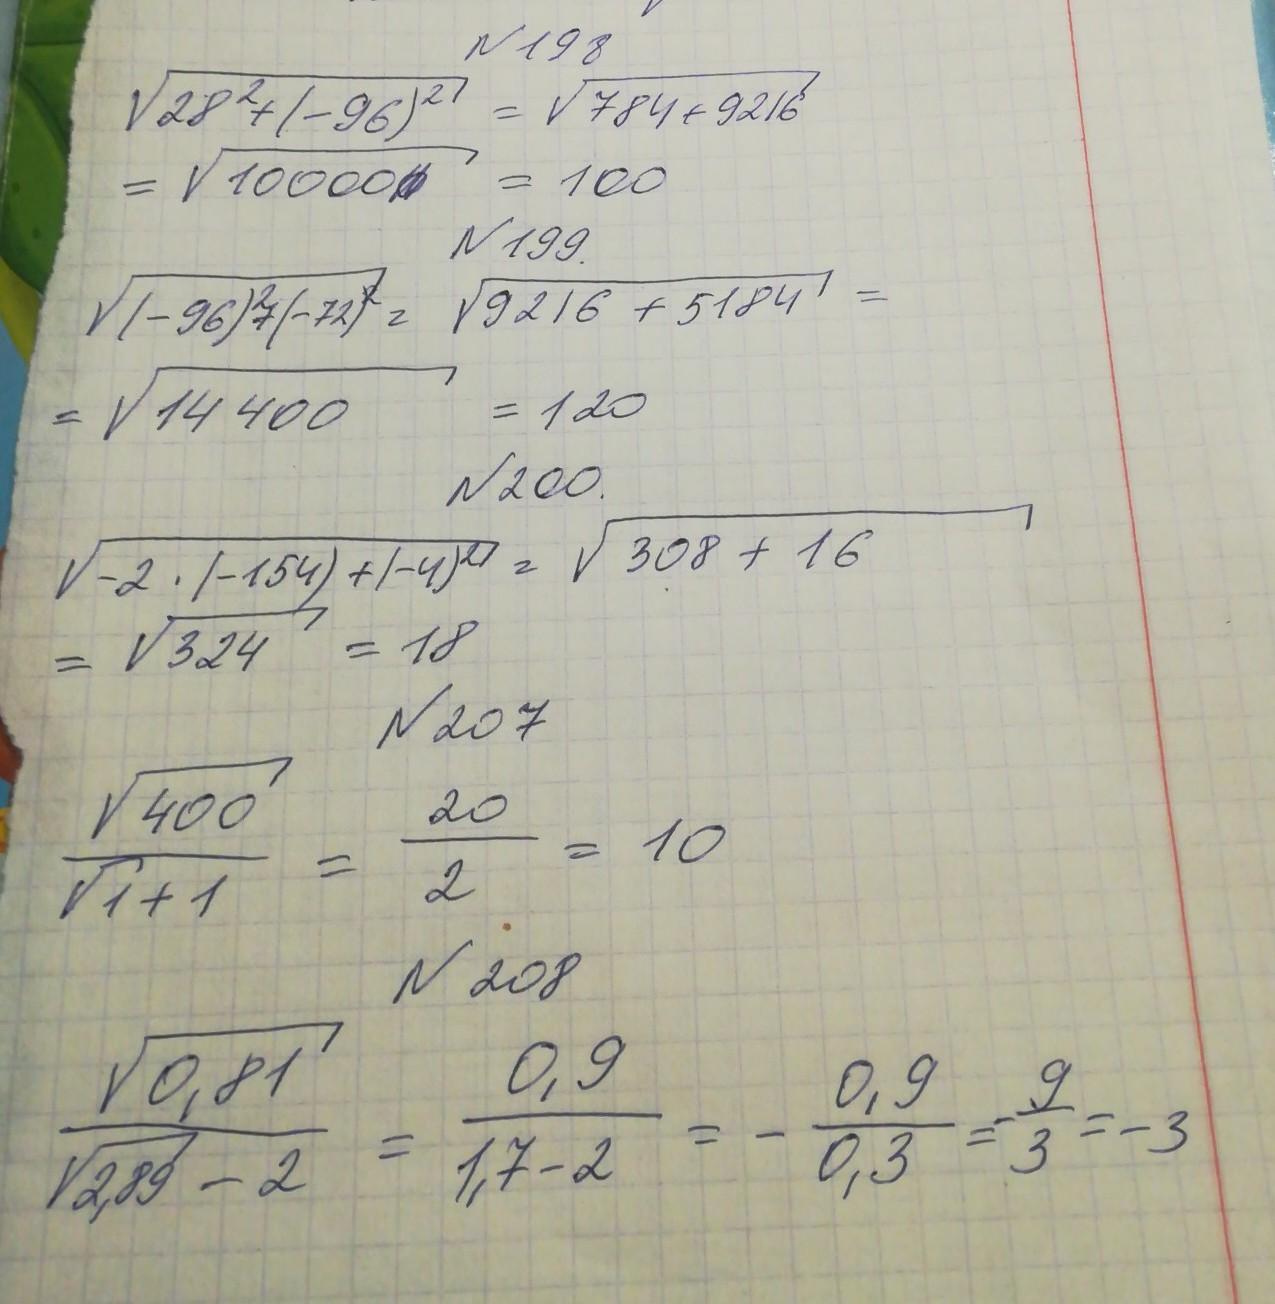 N198
√28²+(-96)² = √784+9216
= √10000 = 100
N199.
√(-96)²+(-72)² = √9216 + 5184 =
= √14 400 = 120
N200.
√-2 · (-154) + (-4)² = √308 + 16
= √324 = 18
N207
√400 / √1+1 = 20 / 2 = 10
N208
√0,81 / √2,89 - 2 = 0,9 / 1,7-2 = - 0,9 / 0,3 = - 9 / 3 = -3